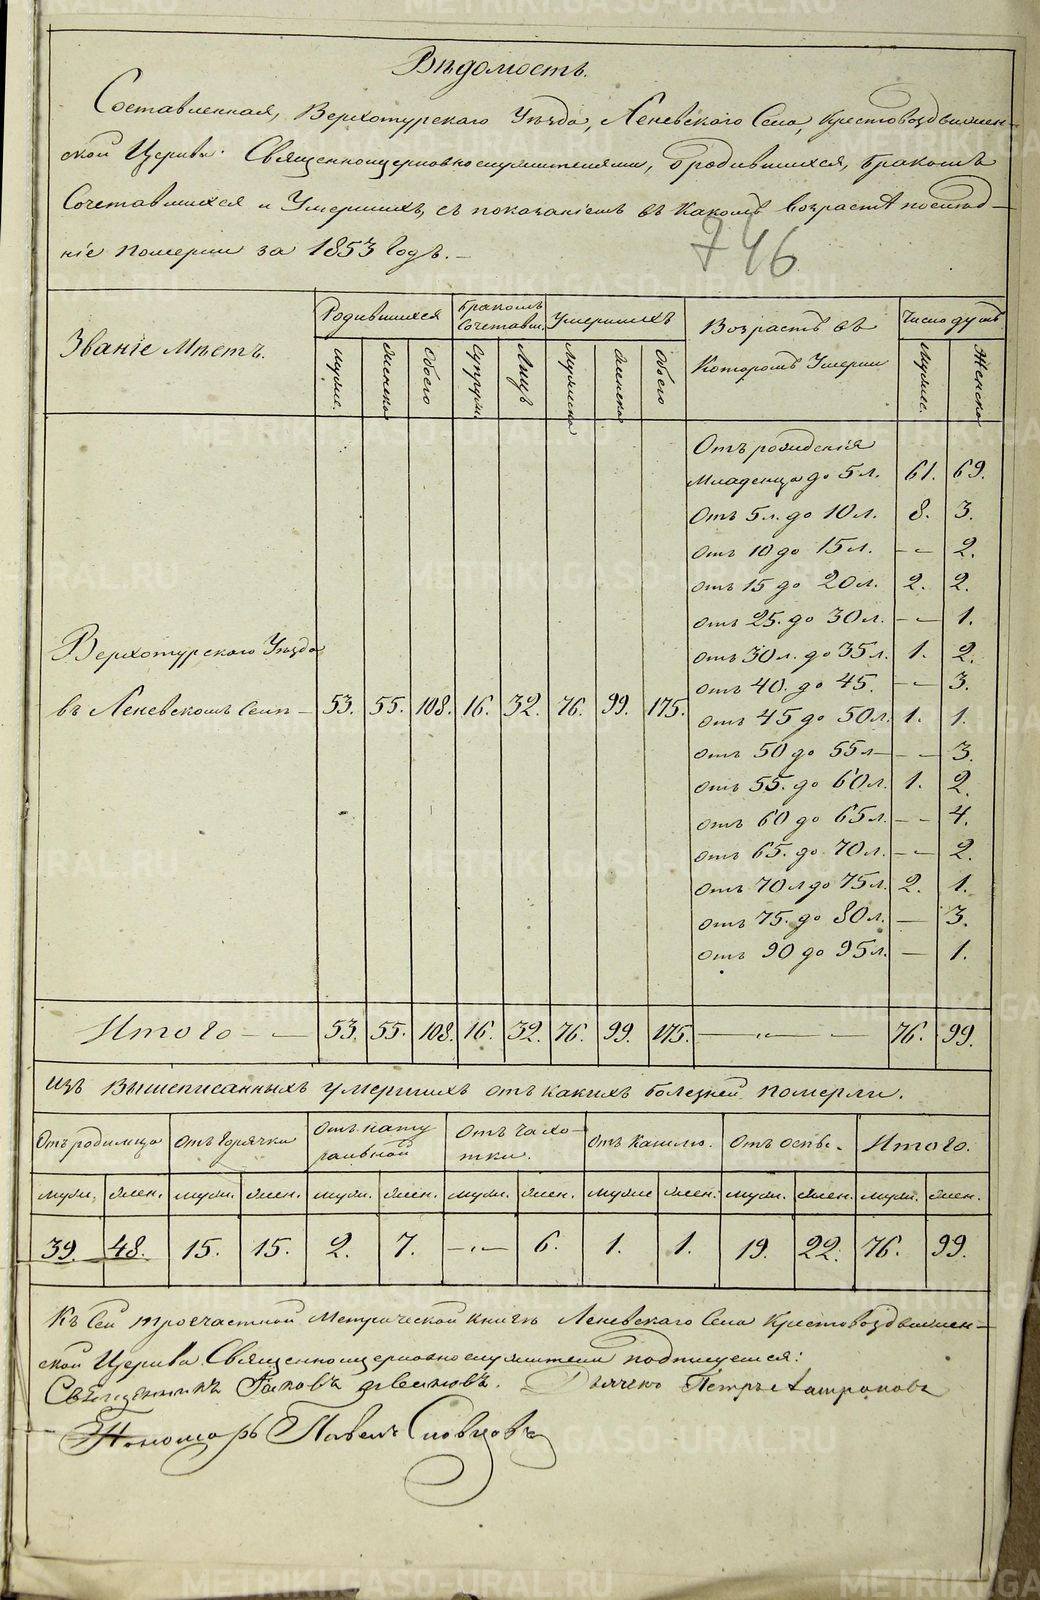 Вѣдомость.
Составленная, Верхотурскаго Уѣзда, Леневскаго Села, Крестовоздвижен-
ской Церкви Священноцерковнослужителями, о родившихся, бракомъ
Сочетавшихся и Умершихъ, съ показаніемъ въ какомъ возрастѣ послѣд-
ніе померли за 1853 Годъ. —
746
Званіе Мѣстъ. Родившихся Бракомъ Сочетавш. Умершихъ Возрастъ въ Которомъ Умерли Число душъ
Муже. Женска Обоего Супруж. Лицъ Мужеска Женска Обоего Муже. Женска
Отъ рожденія
Младенца до 5 л. 61. 69.
Отъ 5 л. до 10 л. 8. 3.
Отъ 10 до 15 л. — „ — 2.
Отъ 15 до 20 л. 2. 2.
Отъ 25. до 30 л. — „ — 1.
Верхотурскаго Уѣзда
Отъ 30 л. до 35 л. 1. 2.
Отъ 40. до 45. — „ — 3.
въ Леневскомъ Селѣ — 53. 55. 108. 16. 32. 76. 99. 175.
Отъ 45 до 50 л. 1. 1.
Отъ 50 до 55 л — — 3.
Отъ 55. до 60 л. 1. 2.
Отъ 60 до 65 л. — — 4.
Отъ 65. до 70 л. — — 2.
Отъ 70 л до 75 л. 2. 1.
Отъ 75. до 80 л. — 3.
Отъ 90 до 95 л. — 1.
Итого — — 53. 55. 108. 16. 32. 76. 99. 175. — „ — — 76. 99.
Изъ вышеписанныхъ умершихъ отъ какихъ болѣзней померли.
Отъ родимца Отъ Горячки Отъ нату Отъ Чахо- Отъ Кашлю. Отъ оспы. Итого.
ральной тки.
муж. жен. муж. жен. муж. жен. муж. жен. муже жен. муж. жен. муж. жен.
39. 48. 15. 15. 2. 7. — „ — 6. 1. 1. 19. 22. 76. 99.
Къ Сей троечастной Метрической книгѣ Леневскаго Села Крестовоздвижен-
ской Церкви Священноцерковнослужители подписуемся:
Священникъ Іаковъ Дьячекъ Петръ
Пономарь Павелъ Словцовъ
METRIKI.GASO-URAL.RU